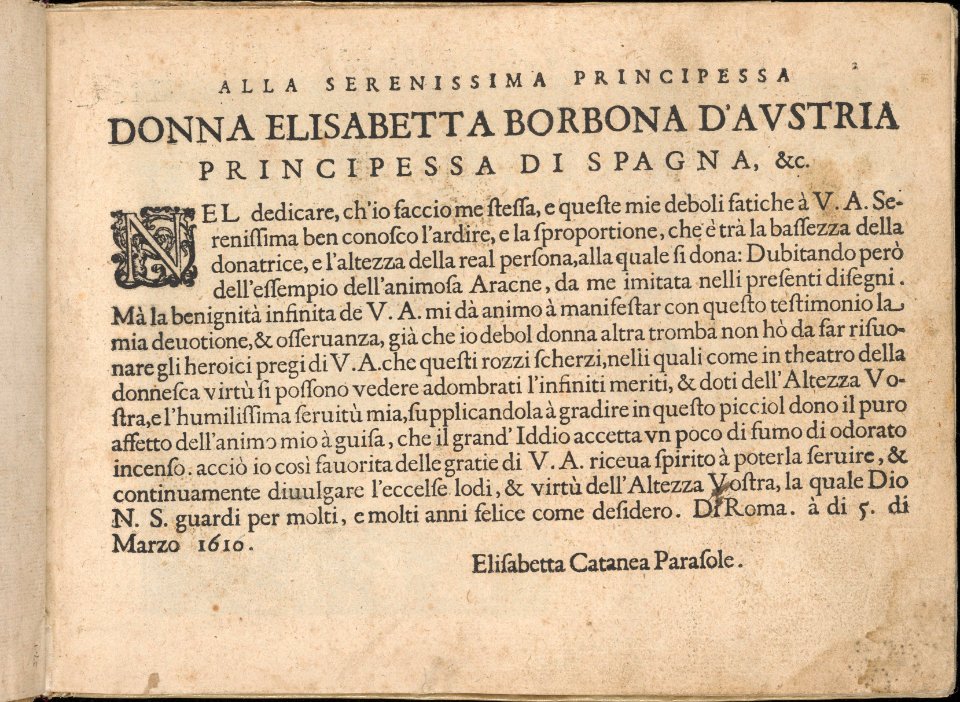 ALLA SERENISSIMA PRINCIPESSA
DONNA ELISABETTA BORBONA D'AVSTRIA
PRINCIPESSA DI SPAGNA, &c.
NEL dedicare, ch'io faccio me steſſa, e queſte mie deboli fatiche à V. A. Se-
reniſſima ben conoſco l'ardire, e la ſproportione, che è trà la baſſezza della
donatrice, e l'altezza della real perſona, alla quale ſi dona: Dubitando però
dell'eſſempio dell'animoſa Aracne, da me imitata nelli preſenti diſegni.
Mà la benignità infinita de V. A. mi dà animo à manifeſtar con queſto teſtimonio la
mia deuotione, & oſſeruanza, già che io debol donna altra tromba non hò da far riſuo-
nare gli heroici pregi di V. A. che queſti rozzi ſcherzi, nelli quali come in theatro della
donneſca virtù ſi poſſono vedere adombrati l'infiniti meriti, & doti dell'Altezza Vo-
ſtra, e l'humiliſſima ſeruitù mia, ſupplicandola à gradire in queſto picciol dono il puro
affetto dell'animo mio à guiſa, che il grand' Iddio accetta vn poco di fumo di odorato
incenſo. acciò io così fauorita delle gratie di V. A. riceua ſpirito à poterla ſeruire, &
continuamente diuulgare l'eccelſe lodi, & virtù dell'Altezza Voſtra, la quale Dio
N. S. guardi per molti, e molti anni felice come deſidero. Di Roma. à di 5. di
Marzo 1610.
Eliſabetta Catanea Paraſole.